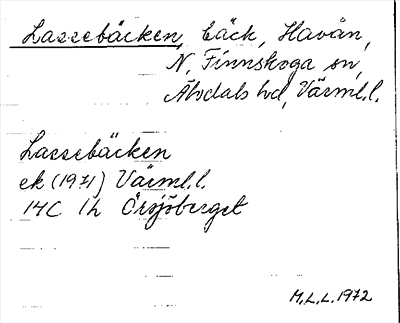 Lassebäcken, bäck, Havån,
N. Finnskoga sn,
Älvdals hd, Värml.l.
Lassebäcken
ek (1971) Värml.l.
14C 1h Örsjöberget
M.L.L. 1972